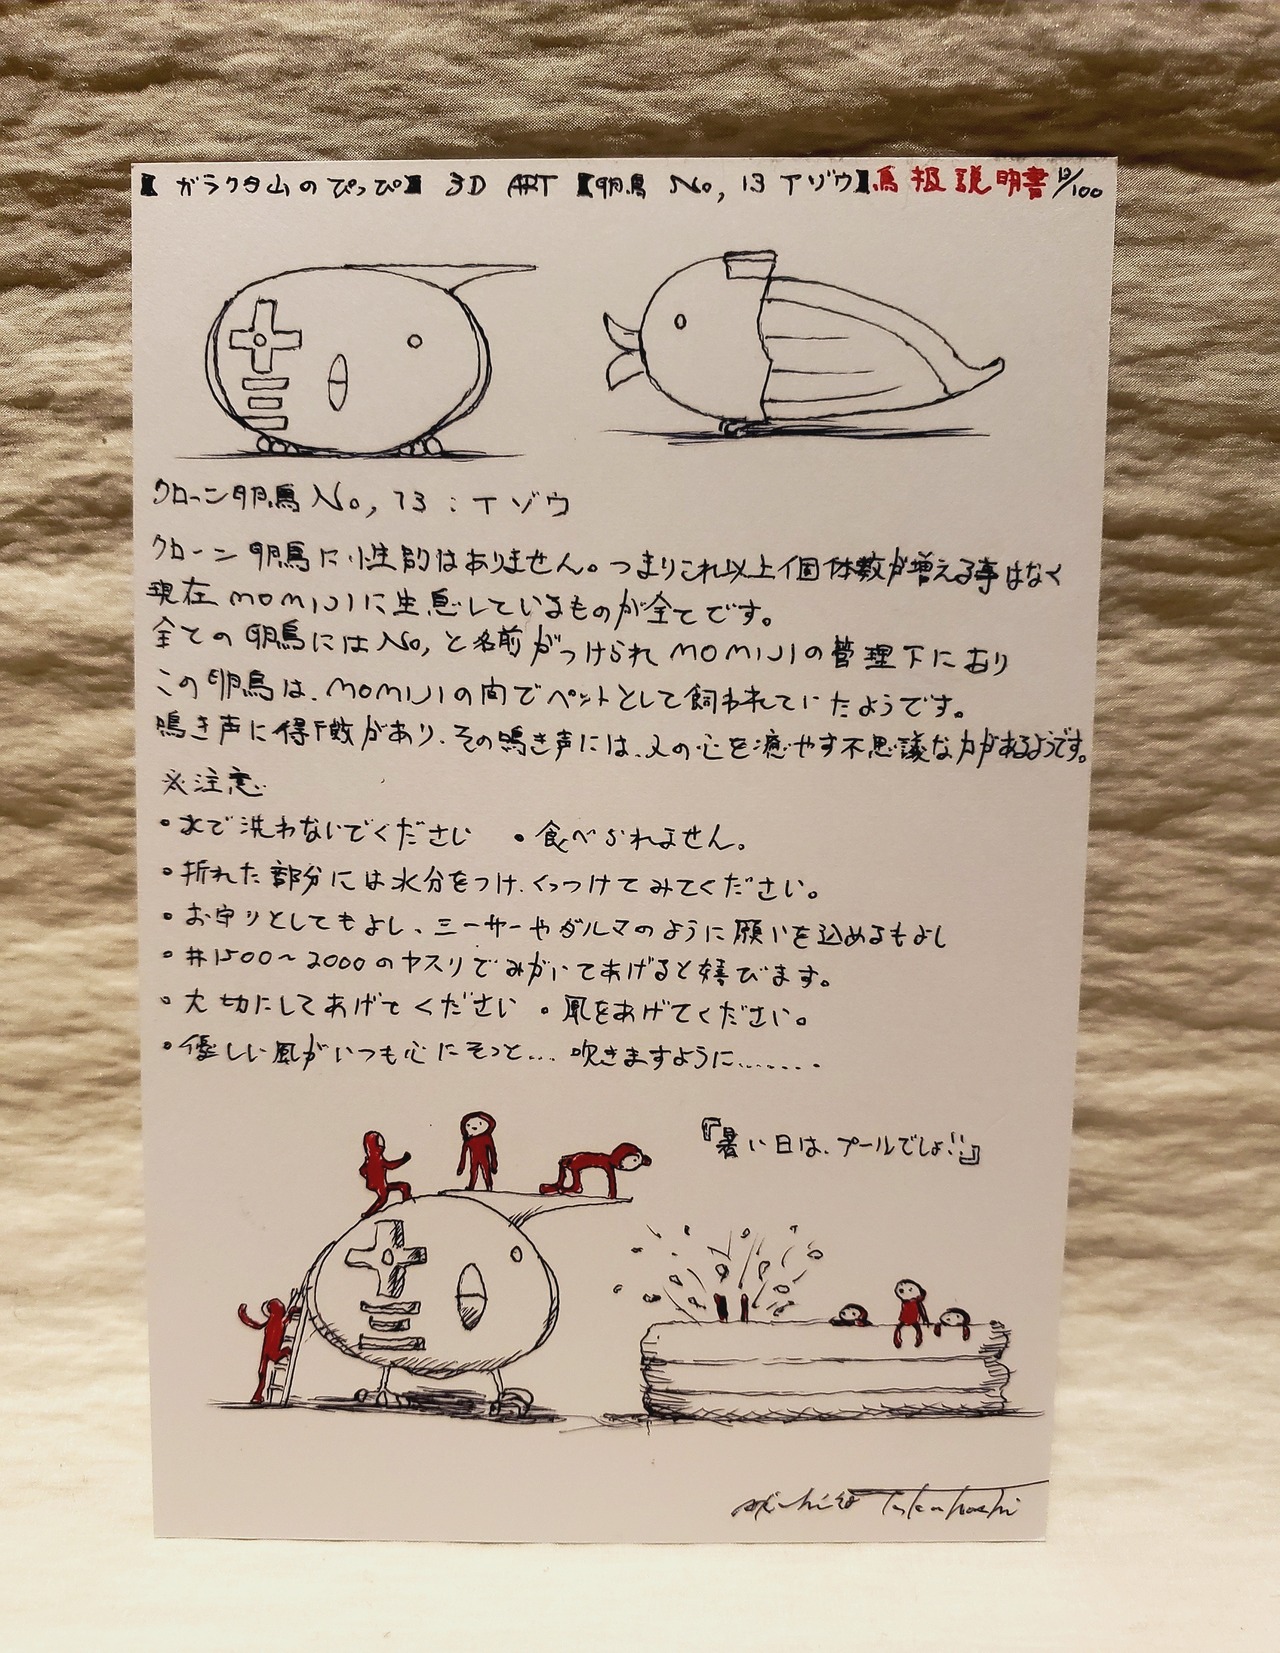 【ガラクタ山のぴっぴ】 3D ART 【卵鳥 No, 13 Tゾウ】鳥扱説明書 13/100
クローン卵鳥 No, 13 : Tゾウ
クローン卵鳥に性別はありません。つまりこれ以上個体数が増える事はなく
現在MOMIJIに生息しているものが全てです。
全ての卵鳥にはNo,と名前がつけられMOMIJIの管理下におり
この卵鳥は、MOMIJIの間でペットとして飼われていたようです。
鳴き声に特徴があり、その鳴き声には、人の心を癒やす不思議な力があるようです。
※注意
・水で洗わないでください ・食べられません。
・折れた部分には水分をつけ、くっつけてみてください。
・お守りとしてもよし、シーサーやダルマのように願いを込めるもよし
・#1500〜2000のヤスリでみがいてあげると喜びます。
・大切にしてあげてください ・風をあげてください。
・優しい風がいつも心にそっと... 吹きますように.......
『暑い日は、プールでしょ!!』
Akihiro Takahashi